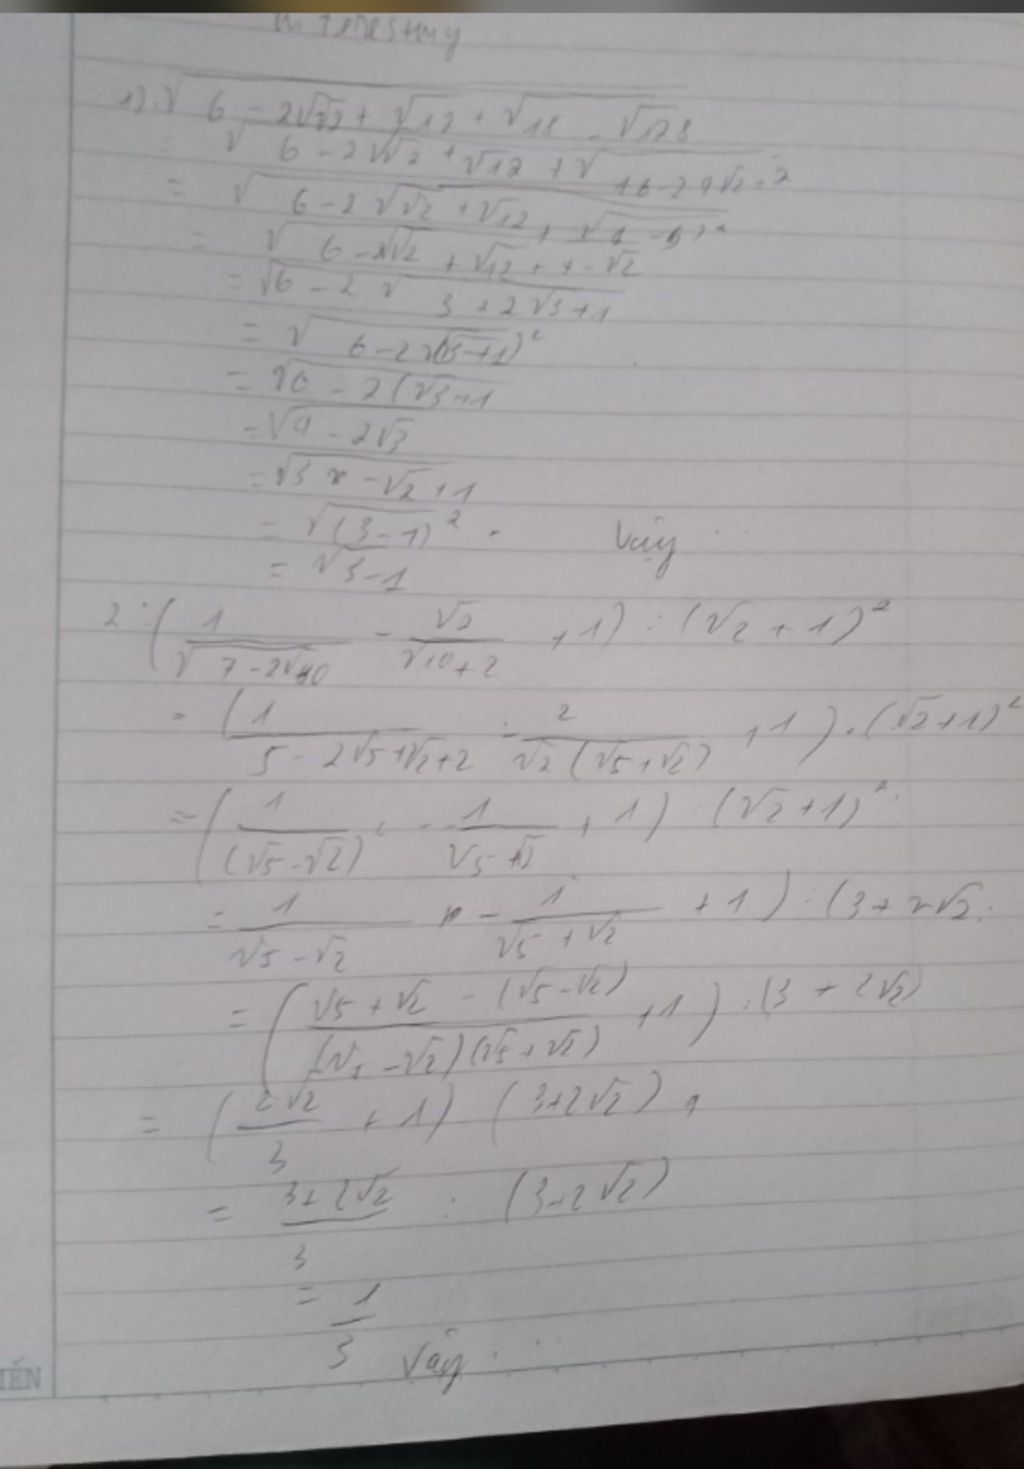 Interesting
1) √(6 - 2√(√2 + √12 + √(18 - √128
= √(6 - 2√(√2 + √12 + √(16 - 2.4√2 + 2
= √(6 - 2√(√2 + √12 + √(4 - )²
= √(6 - 2√(√2 + √12 + 4 - √2
= √(6 - 2√(3 + 2√3 + 1
= √(6 - 2√(√3+1)²
= √(6 - 2(√3+1
= √(4 - 2√3
= √(3 - √2 + 1
= √(3-1)².
Vậy
= √3-1
2: (1/√(7-2√10) - √2/(√10+2) + 1) : (√2+1)²
= (1/(5 - 2√5+√2+2) - 2/(√2(√5+√2)) + 1) . (√2+1)²
= (1/(√5-√2) - 1/(√5+√2) + 1) : (√2+1)²
= 1/(√5-√2) - 1/(√5+√2) + 1) : (3+2√2.
= ((√5+√2 - (√5-√2))/((√5-√2)(√5+√2)) + 1) : (3 + 2√2)
= (2√2/3 + 1) (3+2√2)
= (3+2√2)/3 . (3+2√2)
= 1/3
Vậy :
IẾN